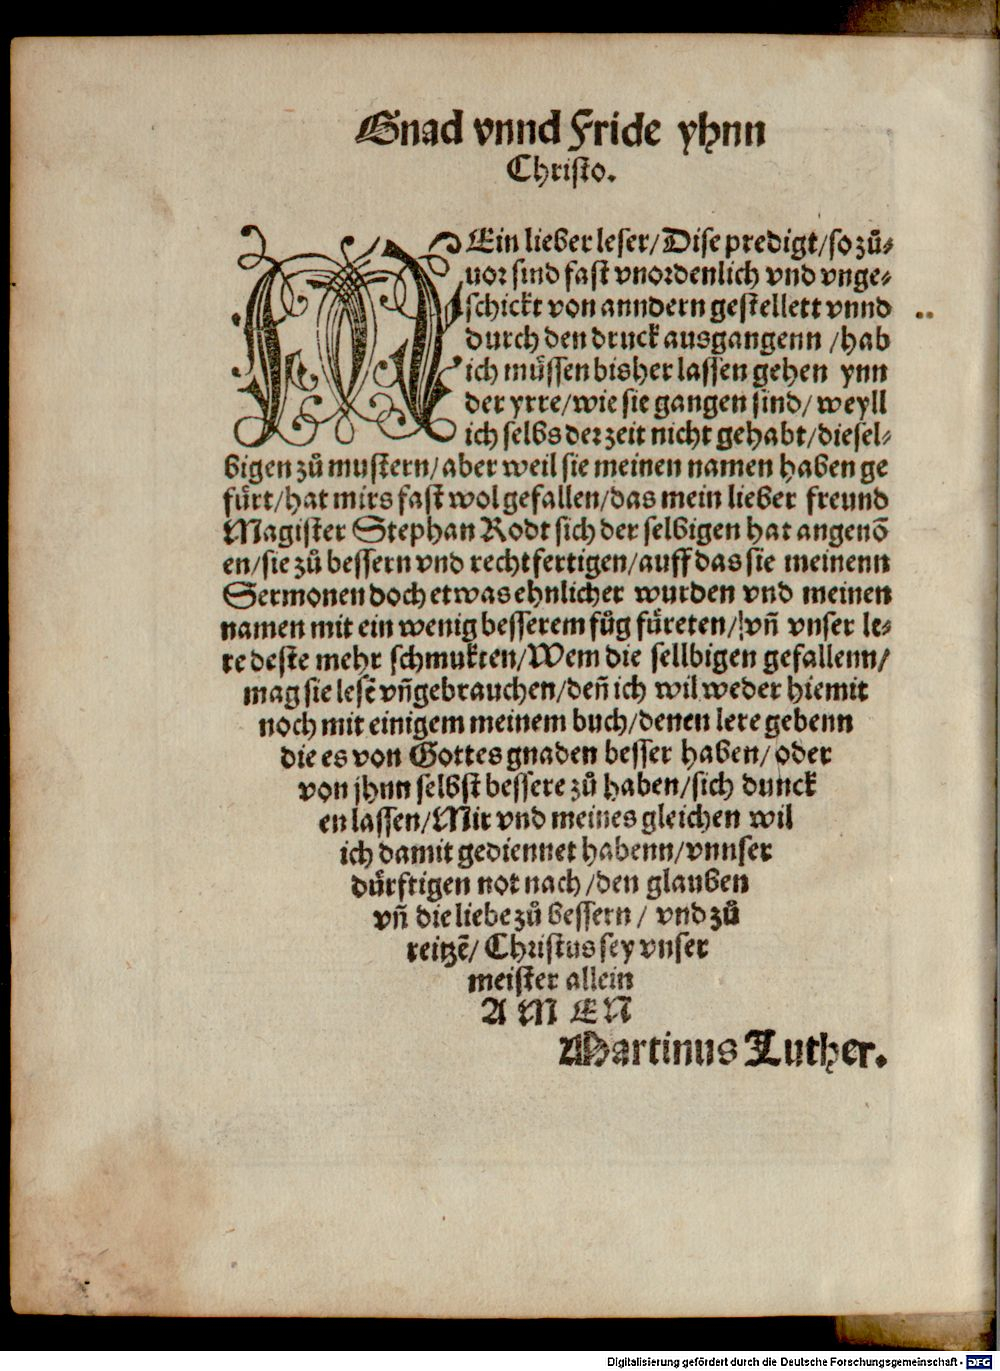 Gnad vnnd Fride yhnn
Christo.
MEin lieber leser/Dise predigt/so zů⸗
uor sind fast vnordenlich vnd vnge⸗
schickt von anndern gestellett vnnd
durch den druck ausgangenn /hab
ich můssen bisher lassen gehen ynn
der yrre/wie sie gangen sind/ weyll
ich selbs der zeit nicht gehabt/diesel⸗
bigen zů mustern/aber weil sie meinen namen haben ge
fůrt/hat mirs fast wol gefallen/das mein lieber freund
Magister Stephan Rodt sich der selbigen hat angenō
en/sie zů bessern vnd rechtfertigen/auff das sie meinenn
Sermonen doch etwas ehnlicher wurden vnd meinen
namen mit ein wenig besserem fůg fůreten/vñ vnser le⸗
re deste mehr schmukten/Wem die sellbigen gefallenn/
mag sie lesē vñgebrauchen/deñ ich wil weder hiemit
noch mit einigem meinem buch/denen lere gebenn
die es von Gottes gnaden besser haben/oder
von jhnn selbst bessere zů haben/sich dunck
en lassen/Mir vnd meines gleichen wil
ich damit gediennet habenn/vnnser
důrftigen not nach/den glauben
vñ die liebe zů bessern/ vnd zů
reitzē/ Christus sey vnser
meister allein
A M E N
Martinus Luther.
Digitalisierung gefördert durch die Deutsche Forschungsgemeinschaft - DFG